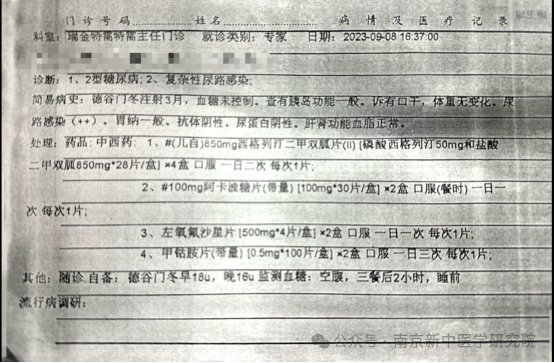 门诊号码 姓名 病情及医疗记录
科室: 瑞金特需特需主任门诊 就诊类别: 专家 日期: 2023-09-08 16:37:00
诊断: 1、2型糖尿病; 2、复杂性尿路感染;
简易病史: 德谷门冬注射3月，血糖未控制。查有胰岛功能一般。诉有口干，体重无变化。尿
路感染（++）。胃纳一般。抗体阴性。尿蛋白阴性。肝肾功能血脂正常。
处理: 药品: 中西药: 1、#(儿自)850mg西格列汀二甲双胍片(II) [磷酸西格列汀50mg和盐酸
二甲双胍850mg*28片/盒] ×4盒 口服 一日二次 每次1片;
2、#100mg阿卡波糖片(带量) [100mg*30片/盒] ×2盒 口服(餐时) 一日一
次 每次1片;
3、左氧氟沙星片 [500mg*4片/盒] ×2盒 口服 一日一次 每次1片;
4、甲钴胺片(带量) [0.5mg*100片/盒] ×2盒 口服 一日三次 每次1片;
其他: 随诊.自备: 德谷门冬早18u，晚16u 监测血糖: 空腹，三餐后2小时，睡前
流行病调研:
公众号·南京新中医学研究院